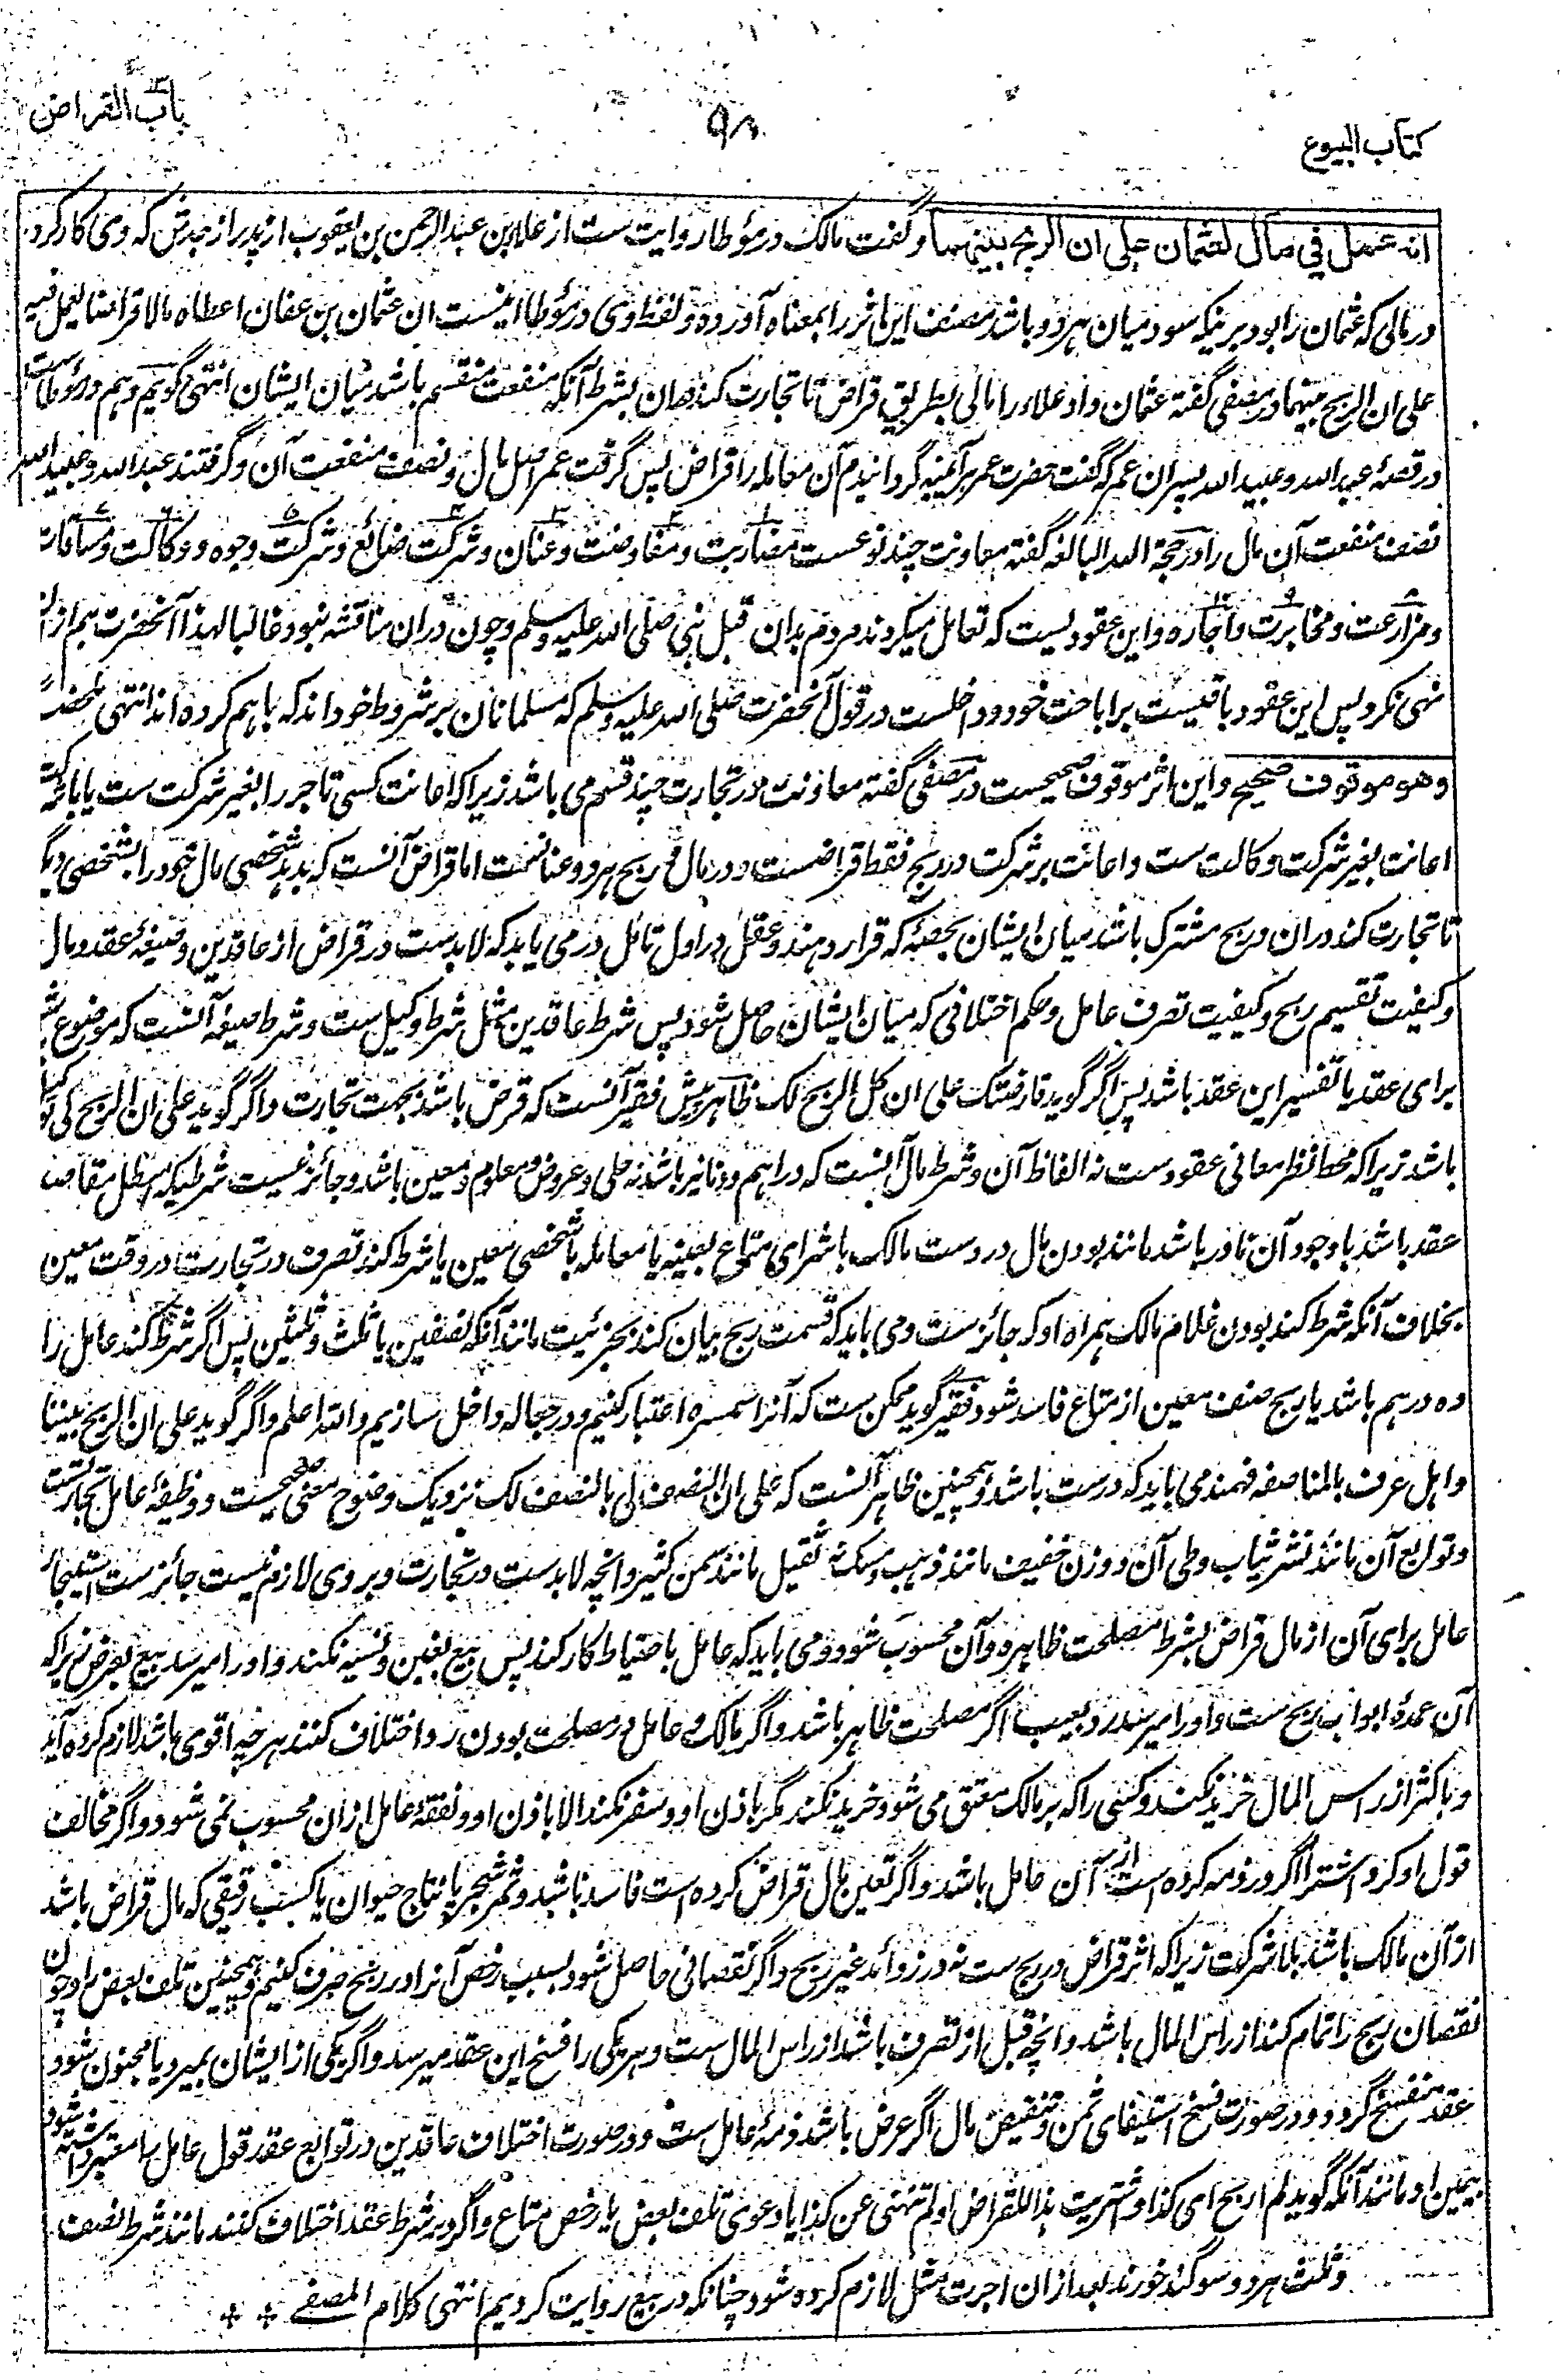 کتاب البیوع
۹۸
باب القراض
انه عمل فی مال لعثمان علی ان الربح بینهما و گفت مالک در مؤطا روایت ست از علاء بن عبدالرحمن بن یعقوب از پدر از جدش که وی کار کرد
در مالی که عثمان را بود برینکه سود میان هر دو باشد مصنف این اثر را بمعناه آورده و لفظ وی در مؤطا اینست ان عثمان بن عفان اعطاه مالا قراضا یعمل فیه
علی ان الربح بینهما در مصفی گفته عثمان داد علاء را مالی بطریق قراض تا تجارت کند دران بشرط آنکه منفعت منقسم باشد میان ایشان انتهی گویم و هم در مؤطاست
در قصهٔ عبدالله و عبیدالله پسران عمر که گفت حضرت عمر برآئینه گردانیدم آن معامله را قراض پس گرفت عمر اصل مال و نصف منفعت آن و گرفتند عبدالله و عبیدالله
نصف منفعت آن مال را در حجة الله البالغه گفته معاونت چند نوعست مضاربت و مفاوضت و عنان و شرکت صنائع و شرکت وجوه و وکالت و مساقات
و مزارعت و مخابرت و اجاره و این عقودیست که تعامل میکردند مردم بدان قبل نبی صلی الله علیه وسلم و چون دران مناقشه نبود غالبا لهذا آنحضرت هم ازان
نهی نکرد پس این عقود باقیست بر اباحت خود و داخلست در قول آنحضرت صلی الله علیه وسلم که مسلمانان بر شروط خود اند که باهم کرده اند انتهی
وهو موقوف صحیح و این اثر موقوف صحیحست در مصفی گفته معاونت در تجارت چند قسم می باشد زیراکه اعانت کسی تاجر را بغیر شرکت ست یا بشرکت
اعانت بغیر شرکت وکالت ست و اعانت بر شرکت در ربح فقط قراضست و در مال و ربح هر دو عنانست اما قراض آنست که بدهد شخصی مال خود را بشخصی دیگر
تا تجارت کند دران و ربح مشترک باشد میان ایشان بحصهٔ که قرار دهند و عقل در اول تامل در می یابد که لابدست در قراض از عاقدین و صیغهٔ عقد و مال
و کیفیت تقسیم ربح و کیفیت تصرف عامل و حکم اختلافی که میان ایشان حاصل شود پس شرط عاقدین مثل شرط وکیل ست و شرط صیغه آنست که موضوع
برای عقد یا تفسیر این عقد باشد پس اگر گوید قارضتک علی ان کل الربح لک ظاهر پیش فقیر آنست که قرض باشد بجهت تجارت و اگر گوید علی ان الربح لی
باشد زیراکه محط نظر معانی عقودست نه الفاظ آن و شرط مال آنست که دراهم و دنانیر باشد نه حلی و عروض و معلوم و معین باشد و جائز نیست شرطیکه مبطل مقاصد
عقد باشد یا وجود آن نادر باشد مانند بودن مال در دست مالک یا شرای متاع بعینه یا معامله با شخصی معین یا شرط کند تصرف در تجارت در وقت معین
بخلاف آنکه شرط کند بودن غلام مالک همراه او که جائز ست و می باید که قسمت ربح بیان کند بجزئیت مانند آنکه نصفین یا ثلث و ثلثین پس اگر شرط کند عامل را
ده درهم باشد یا ربح صنف معین از متاع فاسد شود فقیر گوید ممکن ست که آنرا سمسره اعتبار کنیم و در جعاله داخل سازیم والله اعلم و اگر گوید علی ان الربح بیننا
و اهل عرف بالمناصفه فهمند می باید که درست باشد و همچنین ظاهر آنست که علی ان النصف لی بالنصف لک نزدیک وضوح معنی صحیحست و وظیفهٔ عامل تجارتست
و توابع آن مانند نشر ثیاب و طی آن و وزن خفیف مانند ذهب و مسک نه ثقیل مانند سمن کثیر و آنچه لابدست در تجارت و بر وی لازم نیست جائز ست استیجار
عامل برای آن از مال قراض بشرط مصلحت ظاهره و آن محسوب شود و می باید که عامل باحتیاط کار کند پس بیع بغبن و نسیه نکند و او را میرسد بیع بعرض زیراکه
آن عمدهٔ ابواب ربح ست و او را میرسد رد بعیب اگر مصلحت ظاهر باشد و اگر مالک و عامل در مصلحت بودن رد اختلاف کنند هر چه اقوی باشد لازم کرده آید
و باکثر از راس المال خرید نکند و کسی را که بر مالک معتق می شود خرید نکند مگر باذن او و سفر نکند الا باذن او و نفقهٔ عامل ازان محسوب نمی شود و اگر مخالف
قول او کرد اشترا اگر در ذمه کرده است از آن عامل باشد و اگر بعین مال قراض کرده است فاسد باشد و ثمر شجر یا نتاج حیوان یا کسب رقیقی که مال قراض باشد
از آن مالک باشد بلا شرکت زیراکه اثر قراض در ربح ست نه در زوائد غیر ربح و اگر نقصانی حاصل شود بسبب رخص آنرا در ربح صرف کنیم و همچنین تلف بعض را و چون
نقصان ربح را تمام کند از راس المال باشد و آنچه قبل از تصرف باشد از راس المال ست و هر یکی را فسخ این عقد میرسد و اگر یکی از ایشان بمیرد یا مجنون شود
عقد منفسخ گردد و در صورت فسخ استیفای ثمن و تنقیص مال اگر عرض باشد ذمهٔ عامل ست و در صورت اختلاف عاقدین در توابع عقد قول عامل را معتبر داشته شود
بیمین او مانند آنکه گوید لم اربح ای کذا و اشتریت هذا للقراض او لم تنهنی عن کذا یا دعوی تلف بعض یا رخص متاع و اگر در شرط عقد اختلاف کنند مانند شرط نصف
و ثلث هر دو سوگند خورند بعد ازان اجرت مثل لازم کرده شود چنانکه در بیع روایت کردیم انتهی کلام المصفی